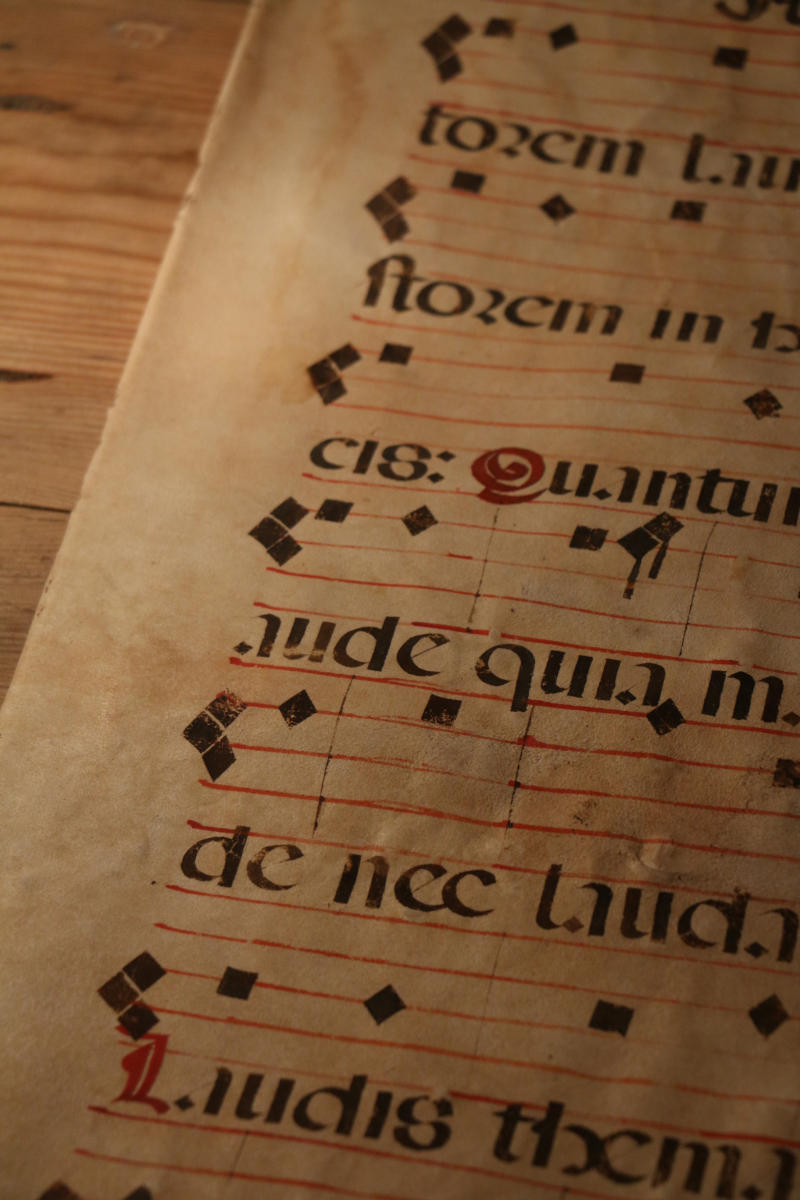 torem lau
storem in h
cis: Quantum
aude quia m
de nec lauda
Laudis thema